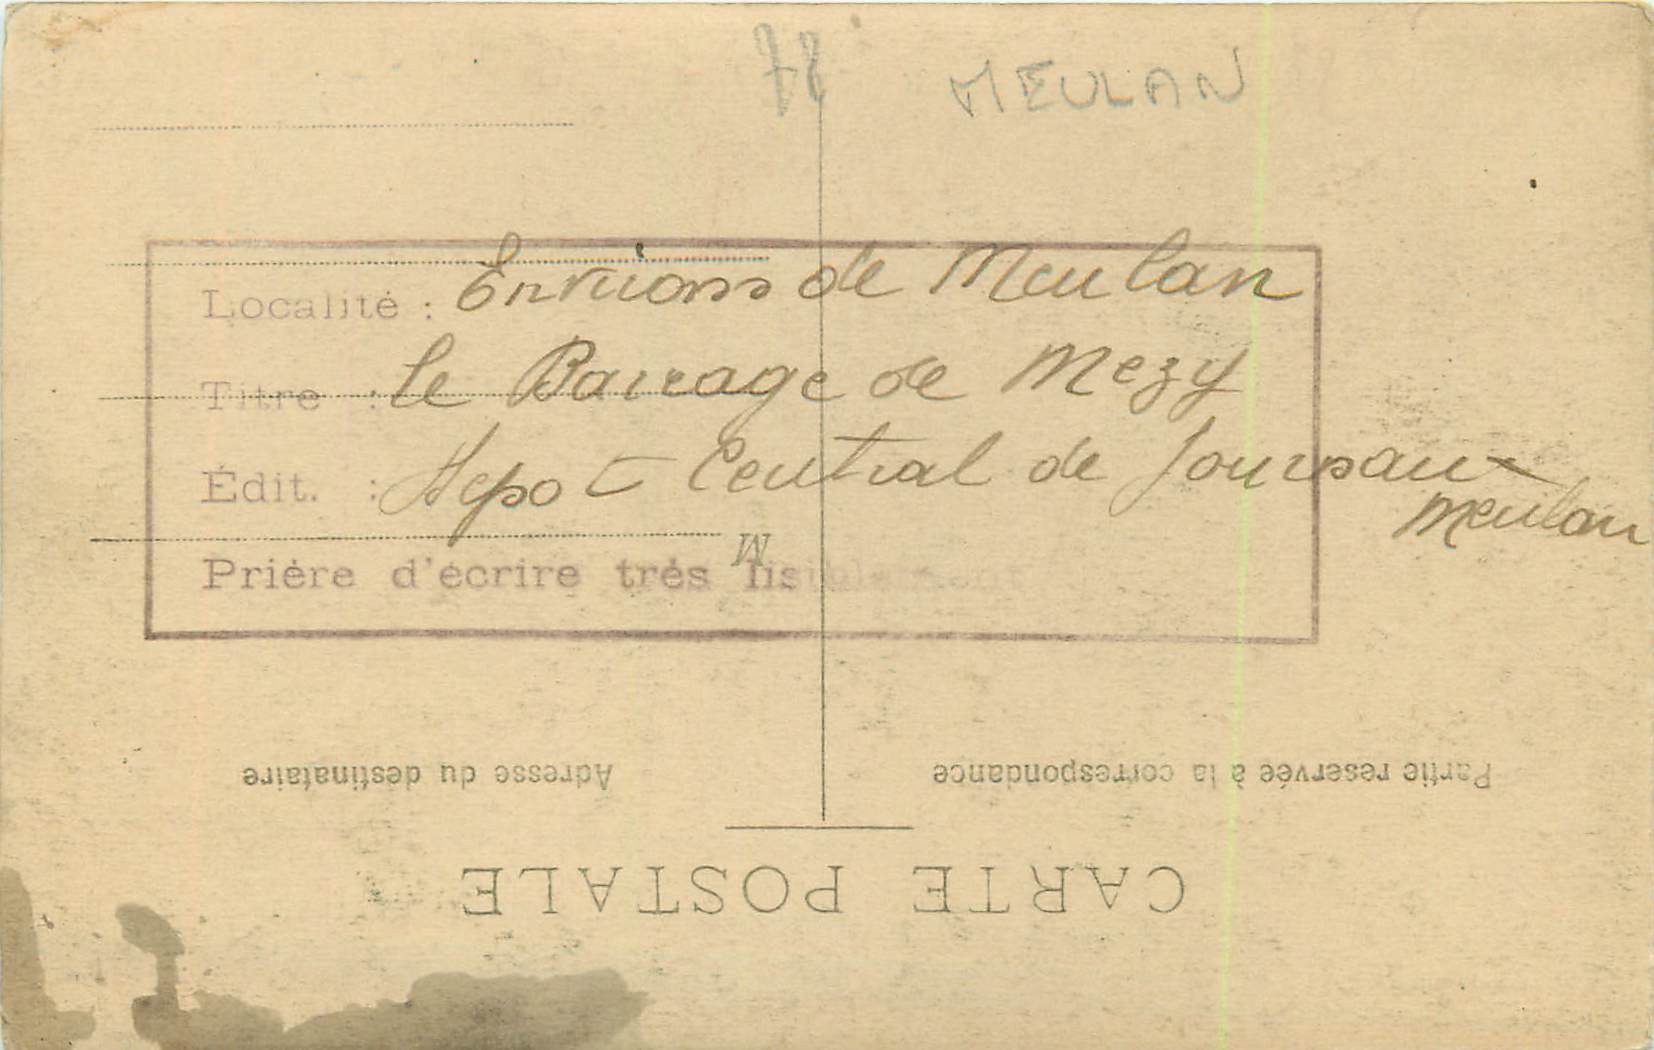 78 MEULAN
Localité : Environs de Meulan
Titre : le Barrage de Mezy
Édit. : Depot Central de Journaux
Meulan
Prière d'écrire très lisiblement
M
Adresse du destinataire
Partie reservée à la correspondance
CARTE POSTALE